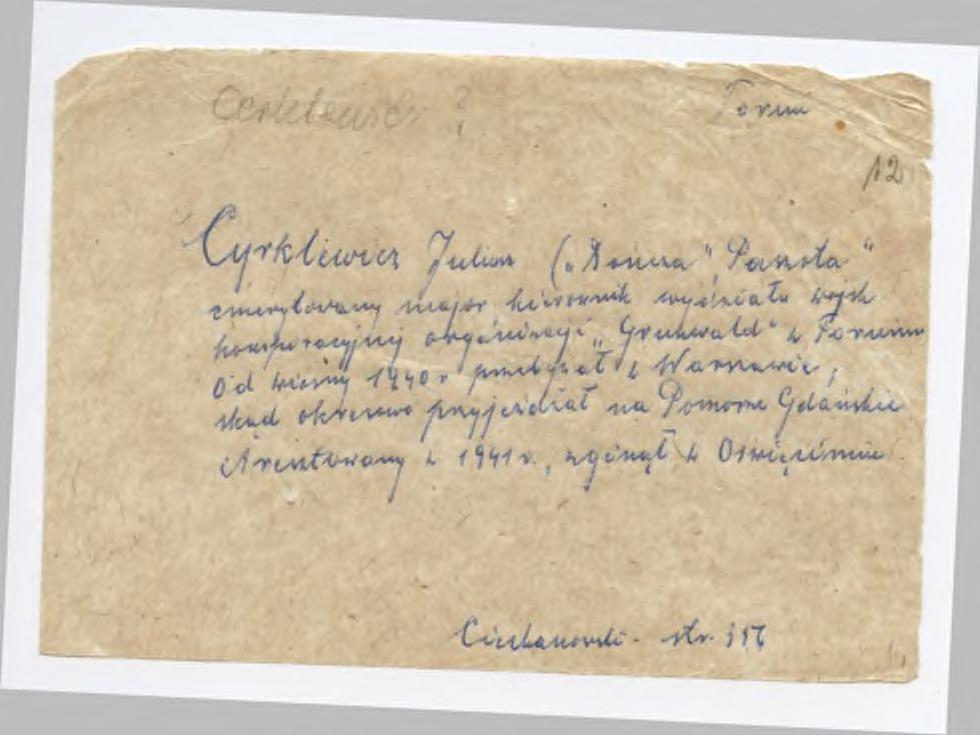 Cerklewicz ?
Toruń
12
Cyrklewicz Juliusz („Dończa” „
emerytowany major, kierownik wydziału wojsk
konspiracyjnej organizacji „Grunwald” w Toruniu
Od wiosny 1940 r przebywał w Warszawie,
skąd okresowo przyjeżdżał na Pomorze Gdańskie
Aresztowany w 1941 r., zginął w Oświęcimiu
Ciechanowski - str.